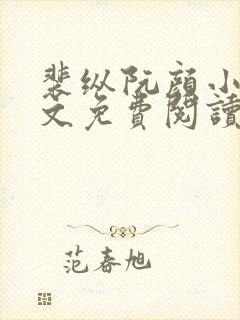 裴纵阮颜小
文免費閱讀
范春旭